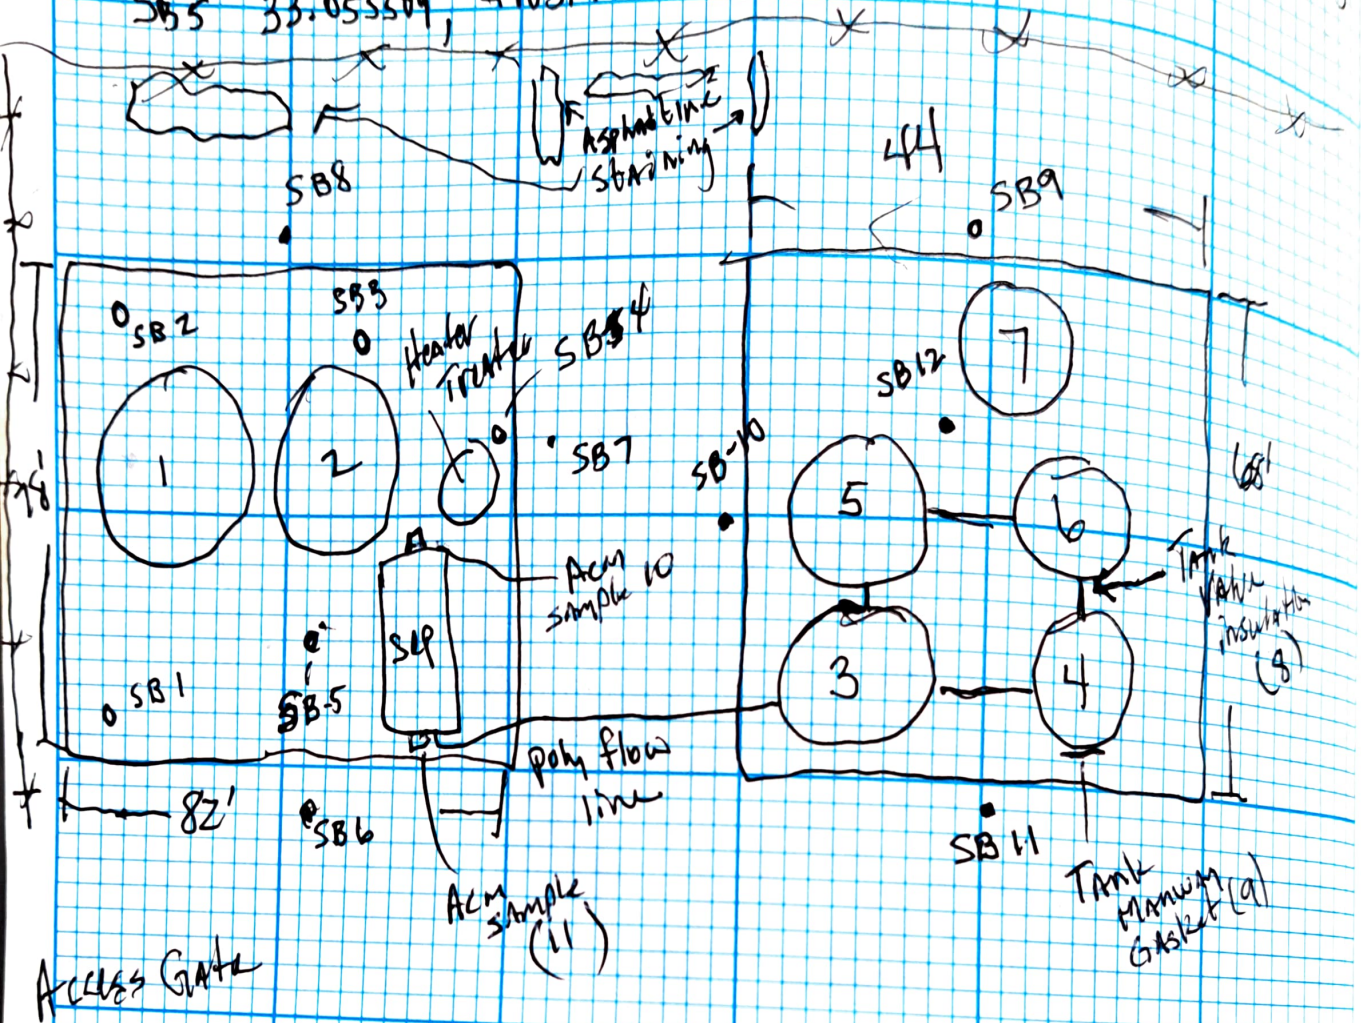 SB5 33.055509,
Asphaltine
Staining
44
SB8
SB9
SB2
SB3
Heater
Treater
SB4
SB12
7
1
2
SB7
SB-10
5
6
68'
Tank
Valve
insulation
(8)
ACM
Sample 10
3
4
SB1
SB-5
Poly flow
line
82'
SB6
SB11
ACM
Sample
(11)
Tank
Manway
Gasket (9)
Access Gate